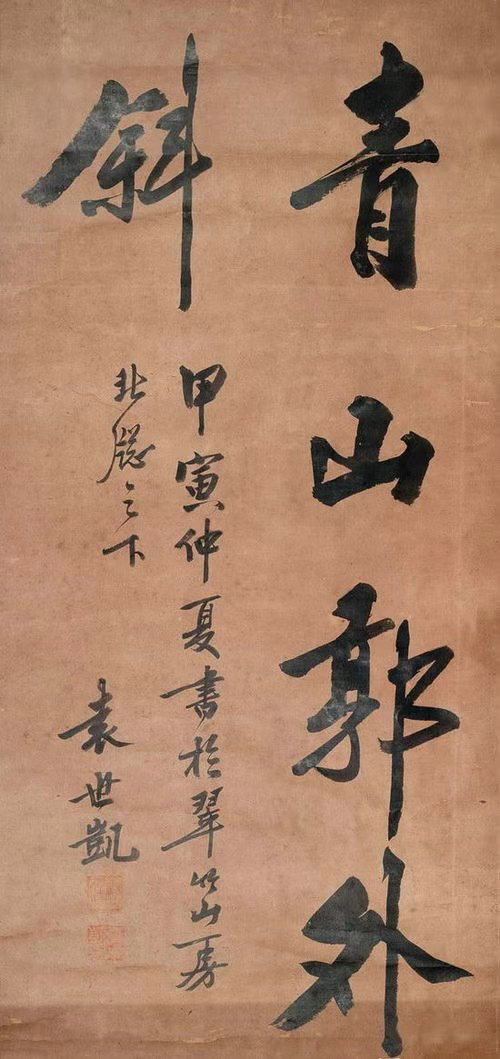 青山郭外
斜
甲寅仲夏書於翠竹山房
北牕之下
袁世凱